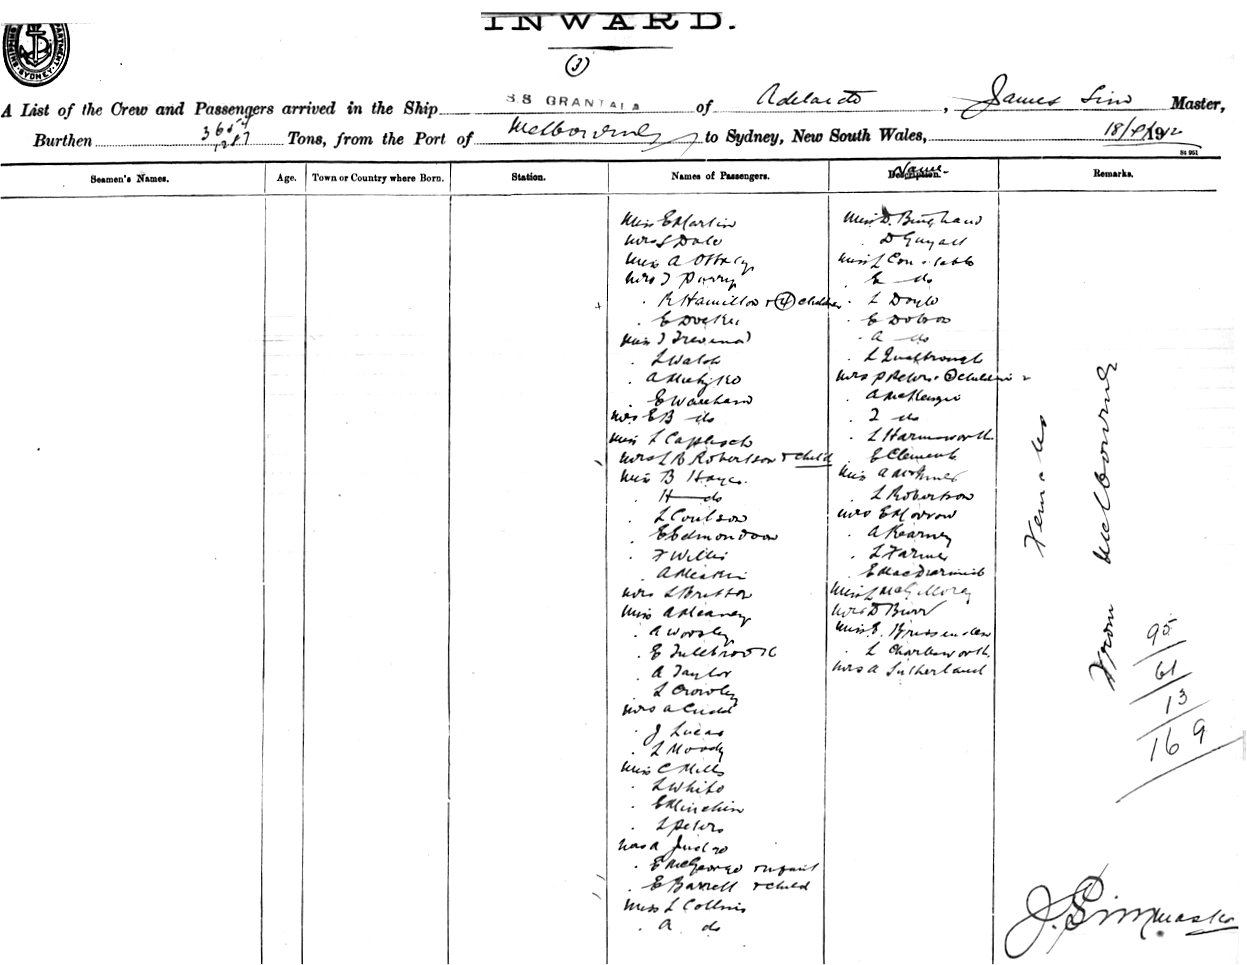 INWARD.
(3)
A List of the Crew and Passengers arrived in the Ship S S GRANTALA of Adelaide, James Sim Master,
Burthen 3655 Tons, from the Port of Melbourne to Sydney, New South Wales, 18/ 1912
Seamen's Names. Age. Town or Country where Born. Station. Names of Passengers. Name Description. Remarks.
Miss E Martin
Mrs S Dale
Miss A
Mrs J Parry
. R Hamilton + (4) children
. E
Miss J
. L Walsh
. A
. E Wareham
Mrs E B do
Miss L
Mrs L B Robertson + child
Miss B Hayes
. H do
. L Coulson
. E Edmondson
. F Willis
. A
Mrs L Britton
Miss A Meaney
. A Worsley
. E Fullbrook
. A Taylor
. L Crowley
Mrs A Cudd
. J Lucas
. L Moody
Miss C Mills
. L White
. E Minchin
. L Peters
Mrs A
. E McGeorge + infant
. E Barrell + child
Miss L Collins
. A do
Miss D. Bingham
. D
Miss L Constable
. E do
. L Doyle
. E Dobson
. A do
. L
Mrs P Peters + children 2
. A McKenzie
. do
. L Harmsworth
. E Clements
Miss A
. L Robertson
Mrs E Morrow
. A Kearney
. L Farmer
. E MacDiarmid
Miss L McGillivray
Mrs D Burr
Miss E. Brissenden
. L Charlesworth
Mrs A Sutherland
Females
From Melbourne
95
61
13
169
J. Sim Master